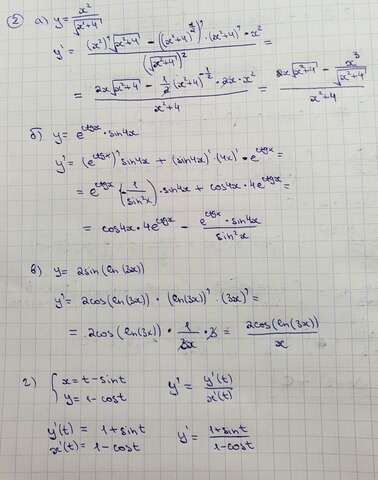 ② а) y = x²/√(x²+4)
y' = ((x²)'√(x²+4) - ((x²+4)^(1/2))' · (x²+4)' · x²)/(√(x²+4))² =
= (2x√(x²+4) - 1/2(x²+4)^(-1/2) · 2x · x²)/(x²+4) = (2x√(x²+4) - x³/√(x²+4))/(x²+4)
б) y = e^(ctgx) · sin4x
y' = (e^(ctgx))' sin4x + (sin4x)' · (4x)' · e^(ctgx) =
= e^(ctgx) (-1/sin²x) · sin4x + cos4x · 4e^(ctgx) =
= cos4x · 4e^(ctgx) - (e^(ctgx) · sin4x)/sin²x
в) y = 2sin(ln(3x))
y' = 2cos(ln(3x)) · (ln(3x))' · (3x)' =
= 2cos(ln(3x)) · 1/3x · 3 = 2cos(ln(3x))/x
г) { x = t - sint
y = 1 - cost
y' = y'(t)/x'(t)
y'(t) = 1 + sint
x'(t) = 1 - cost
y' = (1+sint)/(1-cost)